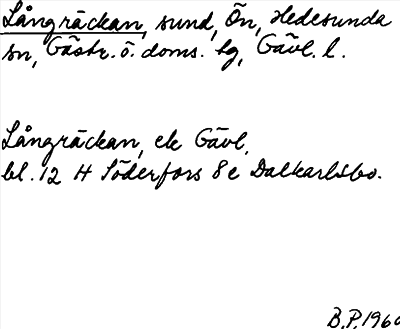 Långräckan, sund, Ön, Hedesunda
sn, Gästr. ö. doms. hg, Gävl. l.
Långräckan, ek Gävl.
bl. 12 H Söderfors 8e Dalkarlsbo.
B.P. 1960